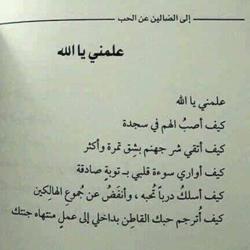 إلى الضالين عن الحب
علمني يا الله
علمني يا الله
كيف أصبُ الهم في سجدة
كيف أتقي شر جهنم بشِق تمرة وأكثر
كيف أواري سوءة قلبي بـ توبةٍ صادقة
كيف أسلكُ درباً تُحبه ، وأنفَضُ عن جُموعِ الهالِكين
كيف أُترجم حبك القاطِن بداخلي إلى عملٍ منتهاه جنتك